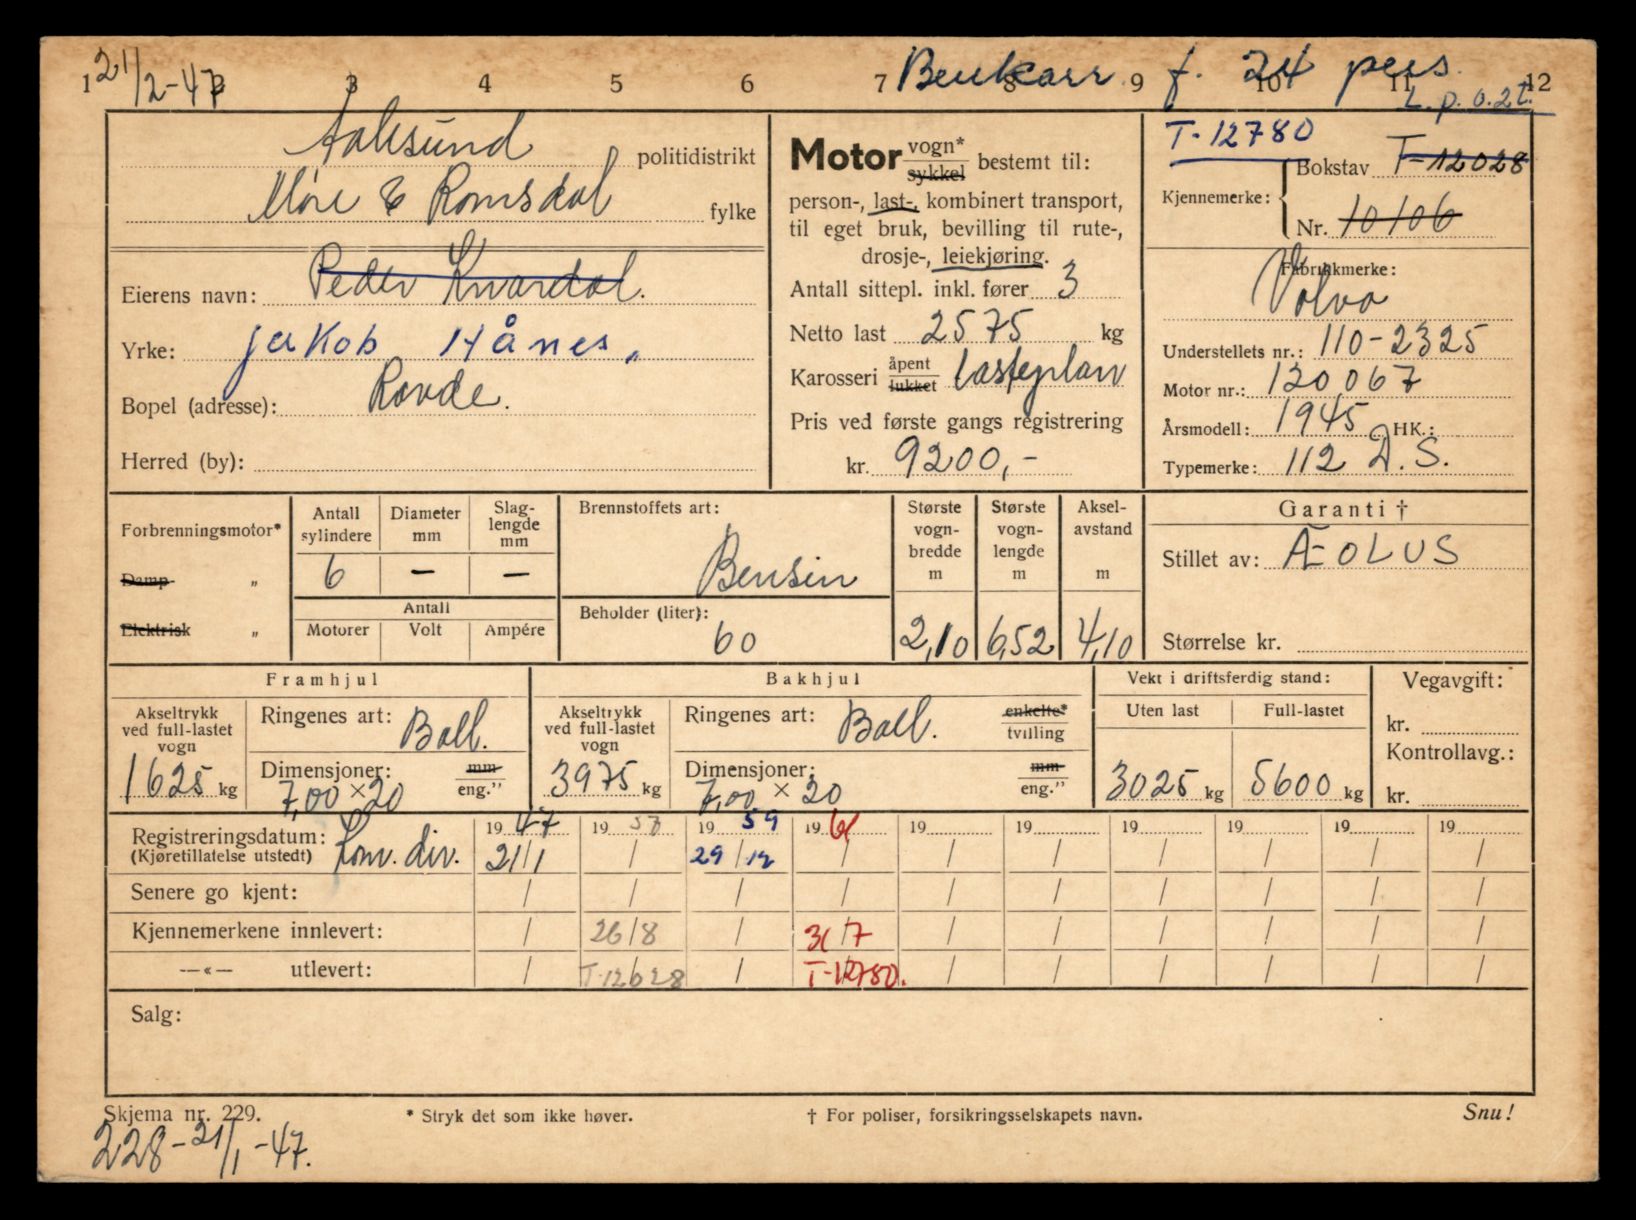 21/2-47 Benkcarr f. 24 pers.
1 2 3 4 5 6 7 8 9 10 11 12
L.p. 0.2t.
Aalesund politidistrikt
Møre & Romsdal fylke
Eierens navn: Peder Kvardal.
Yrke: Jakob Hånes,
Bopel (adresse): Rovde.
Herred (by):
Motor vogn* sykkel bestemt til:
person-, last-, kombinert transport,
til eget bruk, bevilling til rute-,
drosje-, leiekjøring.
Antall sittepl. inkl. fører 3
Netto last 2575 kg
Karosseri åpent lukket lasteplan
Pris ved første gangs registrering
kr. 9200,-
T-12780
Kjennemerke: Bokstav T-12028
Nr. 10106
Fabrikkmerke:
Volvo
Understellets nr.: 110-2325
Motor nr.: 120,067
Årsmodell: 1945 HK.:
Typemerke: 112 D.S.
Forbrenningsmotor*
Damp "
Elektrisk "
Antall sylindere Diameter mm Slaglengde mm
6 — —
Antall
Motorer Volt Ampére
Brennstoffets art:
Bensin
Beholder (liter):
60
Største vognbredde m Største vognlengde m Akselavstand m
2,10 6,52 4,10
Garanti †
Stillet av: ÆOLUS
Størrelse kr.
Framhjul
Akseltrykk ved full-lastet vogn
1625 kg
Ringenes art: Ball.
Dimensjoner: mm eng."
7,00 × 20
Bakhjul
Akseltrykk ved full-lastet vogn
3975 kg
Ringenes art: Ball. enkelte* tvilling
Dimensjoner: mm eng."
7,00 × 20
Vekt i driftsferdig stand:
Uten last Full-lastet
3025 kg 5600 kg
Vegavgift:
kr.
Kontrollavg.:
kr.
Registreringsdatum: 1947 1957 1959 1961 19 19 19 19 19 19
(Kjøretillatelse utstedt) Lom. div. 21/1 / 29/12 / / / / / / /
Senere go kjent: / / / / / / / / / /
Kjennemerkene innlevert: / 26/8 / 31/7 / / / / / /
—«— utlevert: / T-12628 / T-12780. / / / / / /
Salg:
Skjema nr. 229. * Stryk det som ikke høver. † For poliser, forsikringsselskapets navn. Snu!
228-21/1-47.